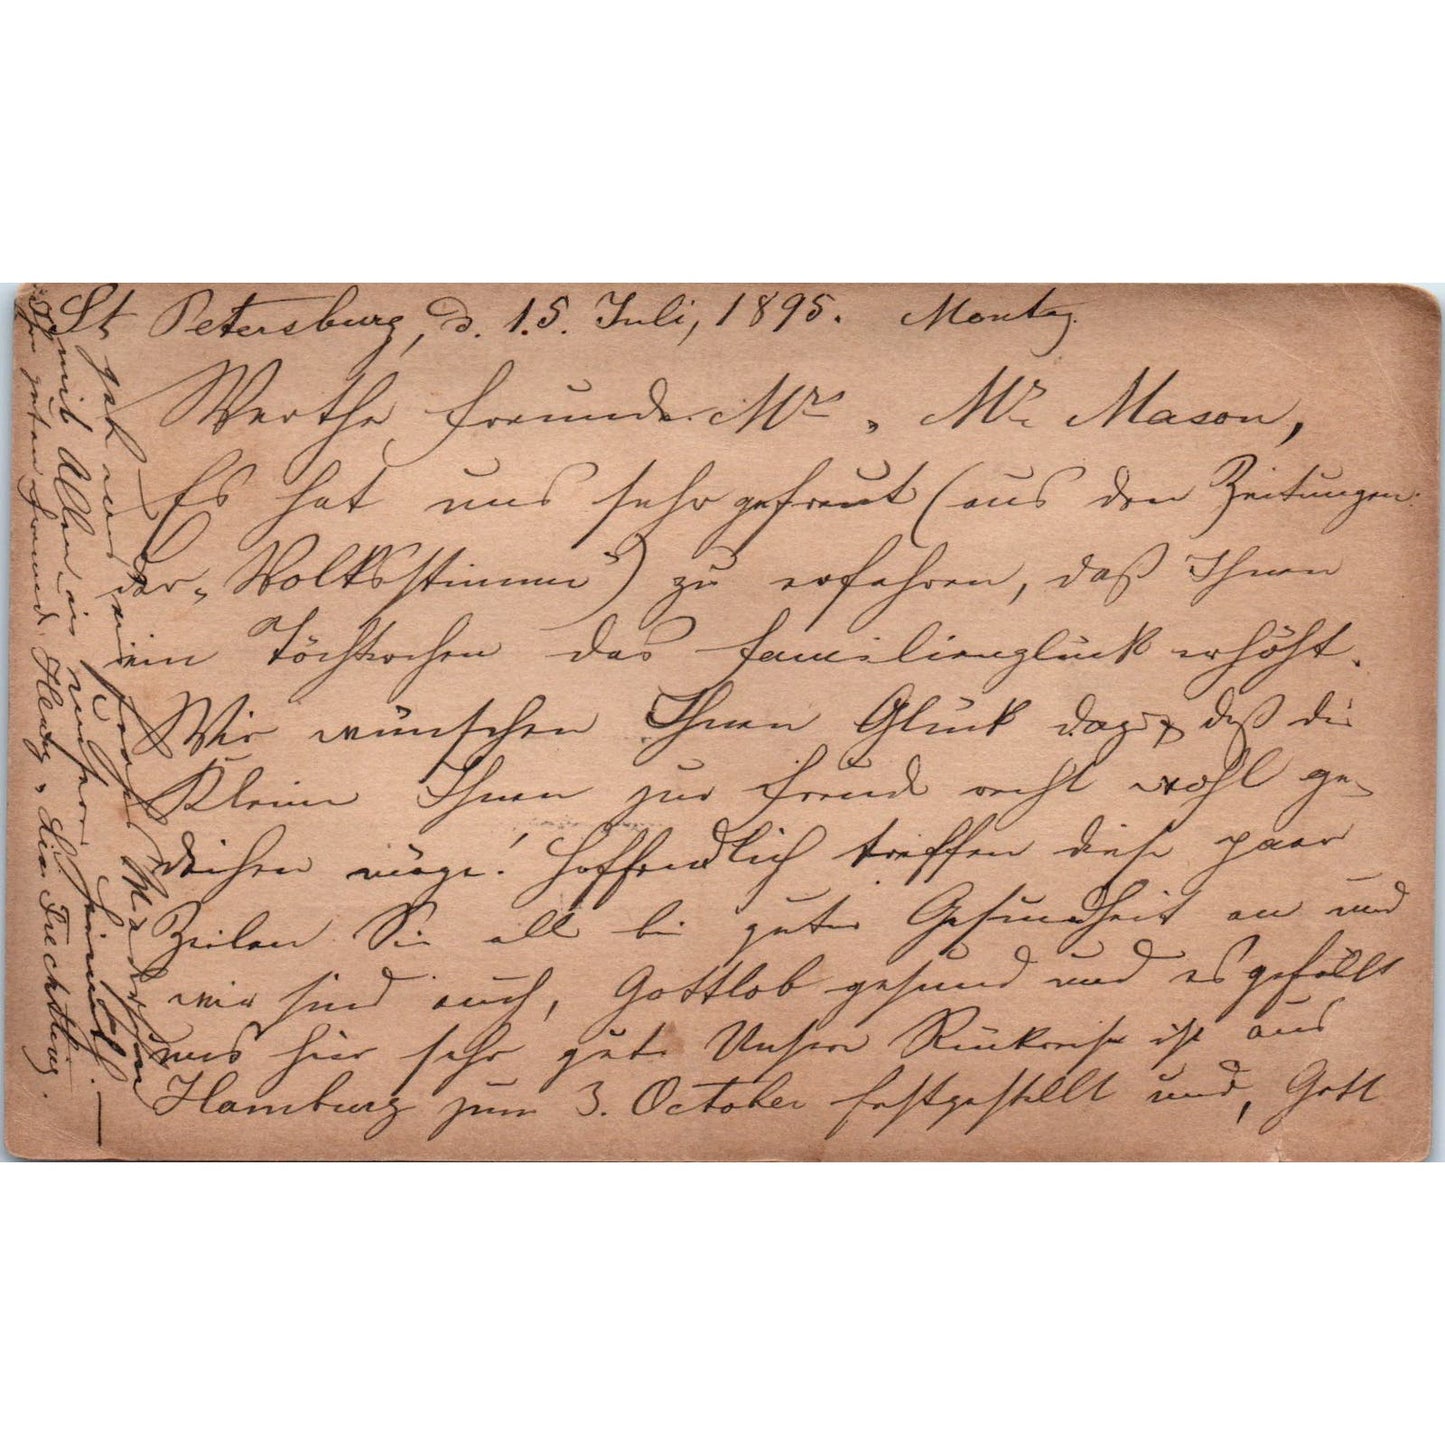 St. Petersburg, d. 15. Juli, 1895. Montag.
Werthe Freunde Mrs u. Mr. Mason,
Es hat uns sehr gefreut (aus den Zeitungen
der „Volksstimme") zu erfahren, daß Ihnen
ein Töchterchen das Familienglück erhöht.
Wir wünschen Ihnen Glück dazu, daß die
Kleine Ihnen zur Freude recht wohl ge-
deihen möge! Hoffendlich treffen diese paar
Zeilen Sie all bei guter Gesundheit an und
wir sind auch, Gottlob gesund und es gefällt
uns hier sehr gut. Unsere Rückreise ist aus
Hamburg zum 3. October festgestellt und, Gott
geb uns ein frohes Wiedersehn
mit Allen in unserer Heimath. —
Ihre guten Freunde: Henry u. Lina Trechting.